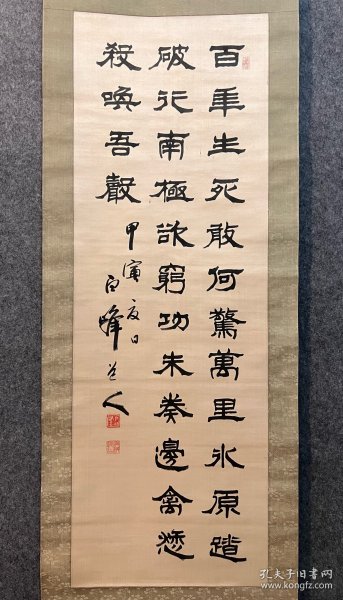 百年生死敢何驚萬里氷原踏
破行南極欲窮功未奏邊禽愁
殺喚吾聲
甲寅夏日
白峰道人
孔夫子旧书网
www.kongfz.com